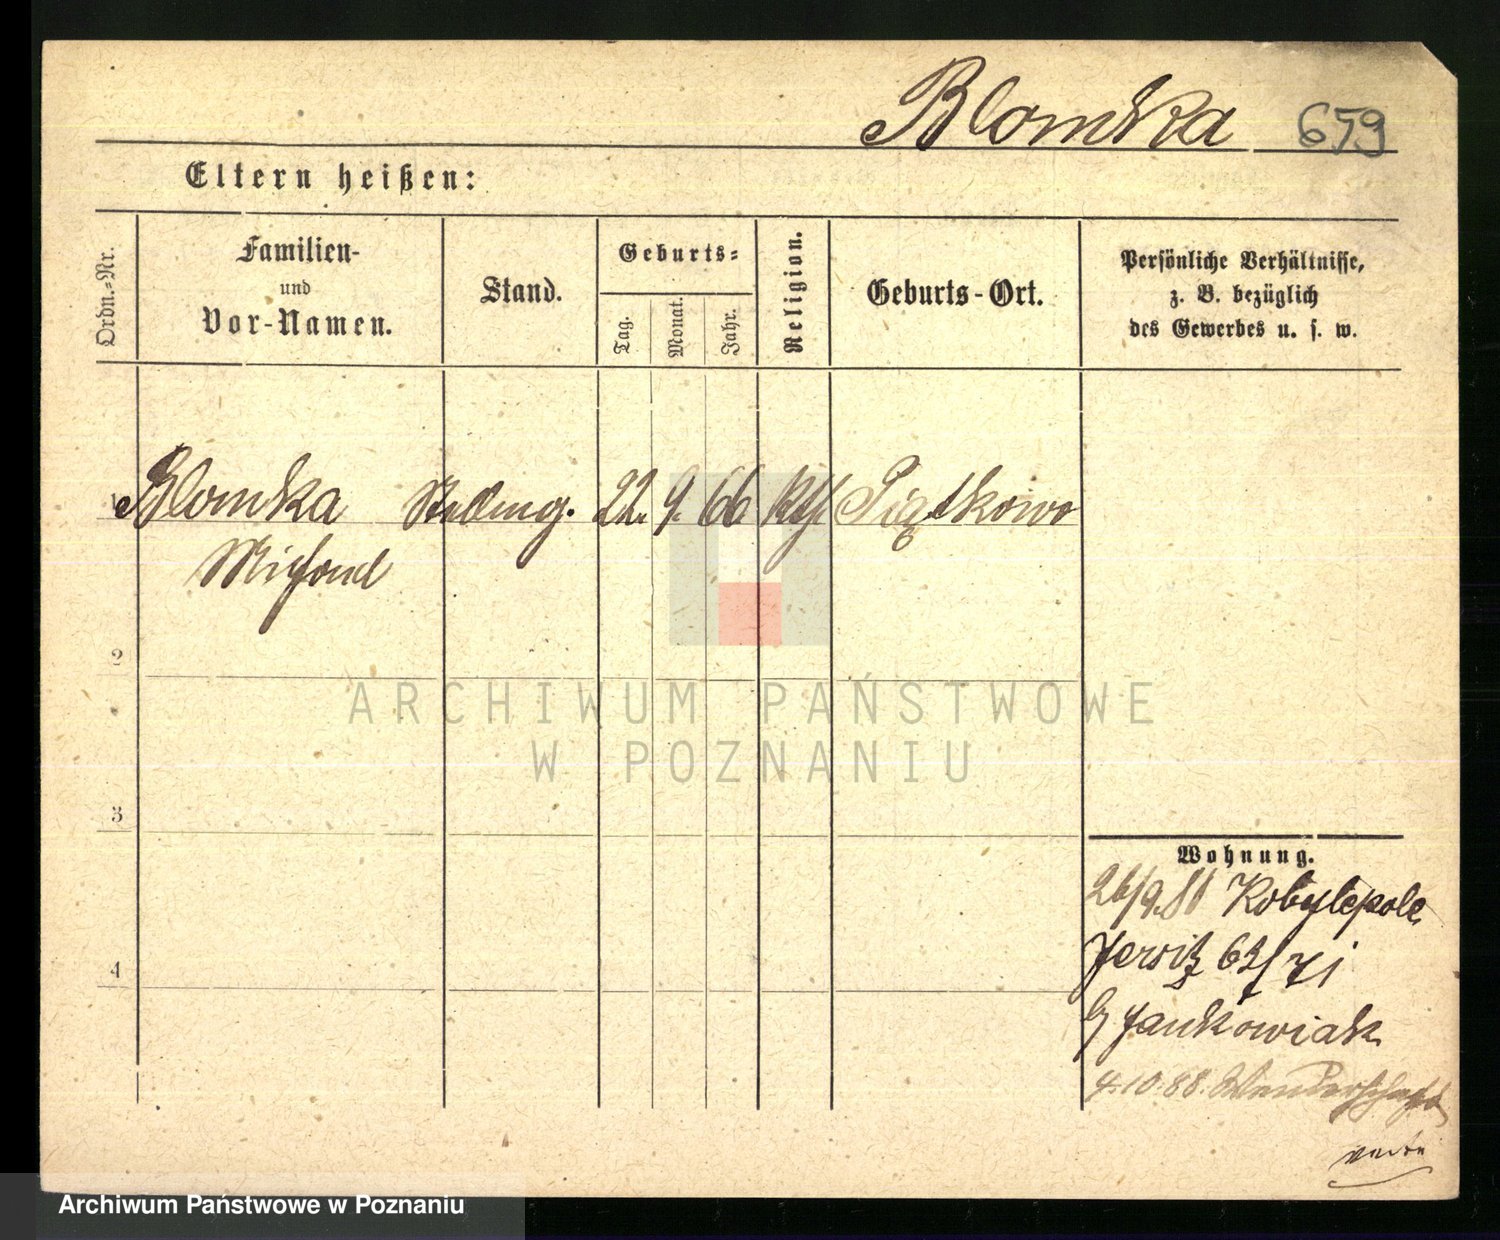 Blomka 659
Eltern heißen:
Ordn.-Nr.
Familien-
und
Vor-Namen.
Stand.
Geburts-
Tag.
Monat.
Jahr.
Religion.
Geburts-Ort.
Persönliche Verhältnisse,
z. B. bezüglich
des Gewerbes u. s. w.
1 Blomka 22. 9. 66 kth Piątkowo
2
3
4
ARCHIWUM PAŃSTWOWE
W POZNANIU
Wohnung.
26/9. Kobylepole
Jersitz 62/71
b/ Jankowiak
4.10.88. Wanderschaft
verte
Archiwum Państwowe w Poznaniu